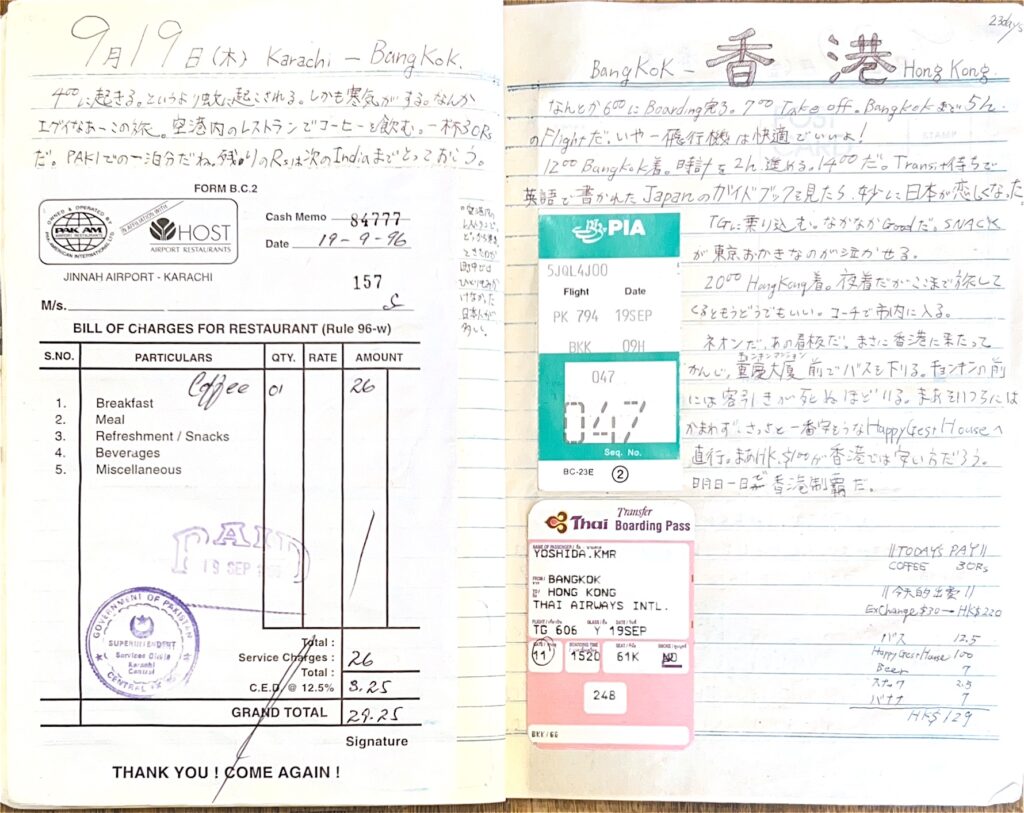 9月19日(木) Karachi — BangKok.
4:00に起きる。というより蚊に起こされる。しかも寒気がする。なんか
エゲイなあーこの旅。空港内のレストランでコーヒーを飲む。一杯30Rs
だ。PAKIでの一泊分だね。残りのRsは次のIndiaまでとっておこう。
FORM B.C.2
OWNED & OPERATED BY
PAK AM
AIRPORT RESTAURANTS
PAN AMERICAN INTERNATIONAL LTD
IN AFFILIATION WITH
HOST
AIRPORT RESTAURANTS
Cash Memo 84777
Date 19-9-96
JINNAH AIRPORT - KARACHI
157
M/s.
BILL OF CHARGES FOR RESTAURANT (Rule 96-w)
S.NO. PARTICULARS QTY. RATE AMOUNT
Coffee 01 26
1. Breakfast
2. Meal
3. Refreshment / Snacks
4. Beverages
5. Miscellaneous
PAID
19 SEP
GOVERNMENT OF PAKISTAN
SUPERINTENDENT
Karachi
Central
Total :
Service Charges : 26
Total :
C.E.D. @ 12.5% 3.25
GRAND TOTAL 29.25
Signature
THANK YOU ! COME AGAIN !
日本人が
多い。
23days
BangKoK — 香港 Hong Kong.
なんとか6:00にBoarding完了。7:00 Take off. Bangkokまで5h.
のFlightだ。いやー飛行機は快適でいいよ!
12:00 Bangkok着。時計を2h進める。14:00だ。Transit待ちで
英語で書かれたJapanのガイドブックを見たら、少しに日本が恋しくなった
TGに乗り込む。なかなかGoodだ。SNACK
が東京おかきなのが泣かせる。
20:00 HongKong着。夜着だがここまで旅して
くるともうどうでもいい。コーチで市内に入る。
ネオンだ。あの看板だ。まさに香港に来たって
かんじ。重慶大厦前でバスを下りる。チョンキンの前
には客引きが死ぬほどいる。
かまわず、さっさと一番安そうなHappy Gest Houseへ
直行。まあHK.$100が香港では安い方だろう。
明日一日が香港制覇だ。
PIA
5JQL4J00
Flight Date
PK 794 19SEP
BKK 09H
047
047
Seq. No.
BC-23E 2
Thai Transfer Boarding Pass
NAME OF PASSENGER
YOSHIDA.KMR
FROM BANGKOK
TO HONG KONG
THAI AIRWAYS INTL.
FLIGHT CLASS DATE
TG 606 Y 19SEP
GATE BOARDING TIME SEAT SMOKE
11 1520 61K NO
248
BKK/66
!!TODAYS PAY!!
COFFEE 30Rs
!!今天的出費!!
ExChange $30 → HK$220
バス 12.5
Happy Gest House 100
Beer 7
スナック 2.5
バナナ 7
HK$129